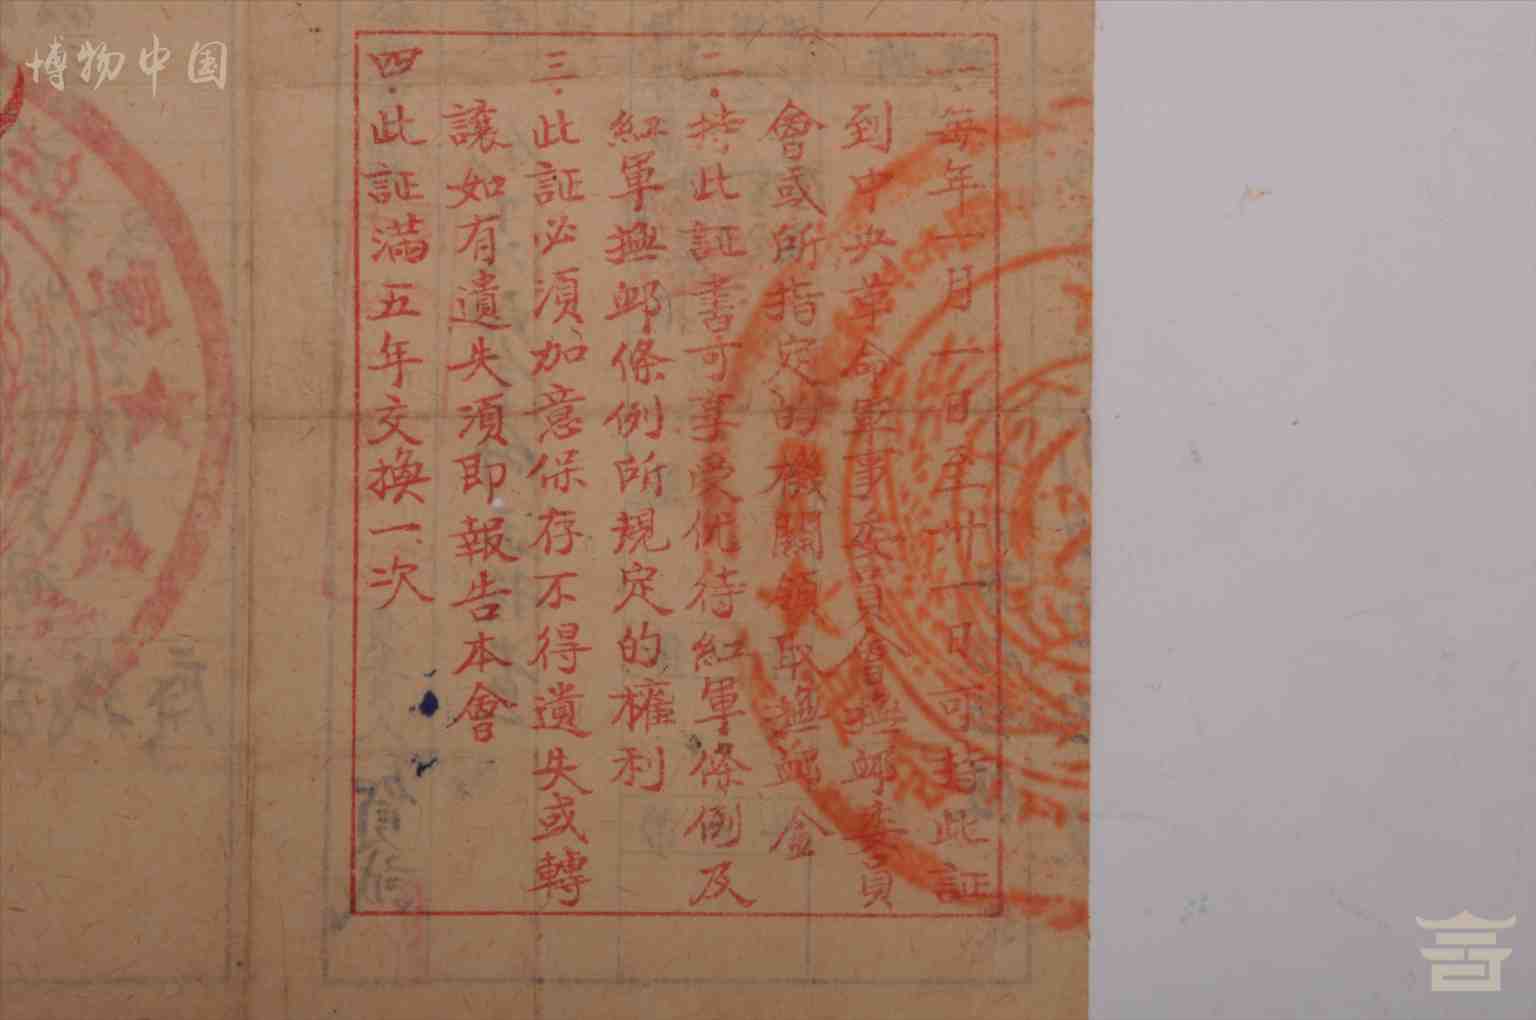 博物中国
一.每年一月一日至卅一日可持此証
到中央革命軍事委員會撫邺委員
會或所指定的機關領取撫邺金
二.持此証書可享受优待紅軍條例及
紅軍撫邺條例所規定的權利
三.此証必須加意保存不得遺失或轉
讓如有遺失須即報告本會
四.此証滿五年交換一次